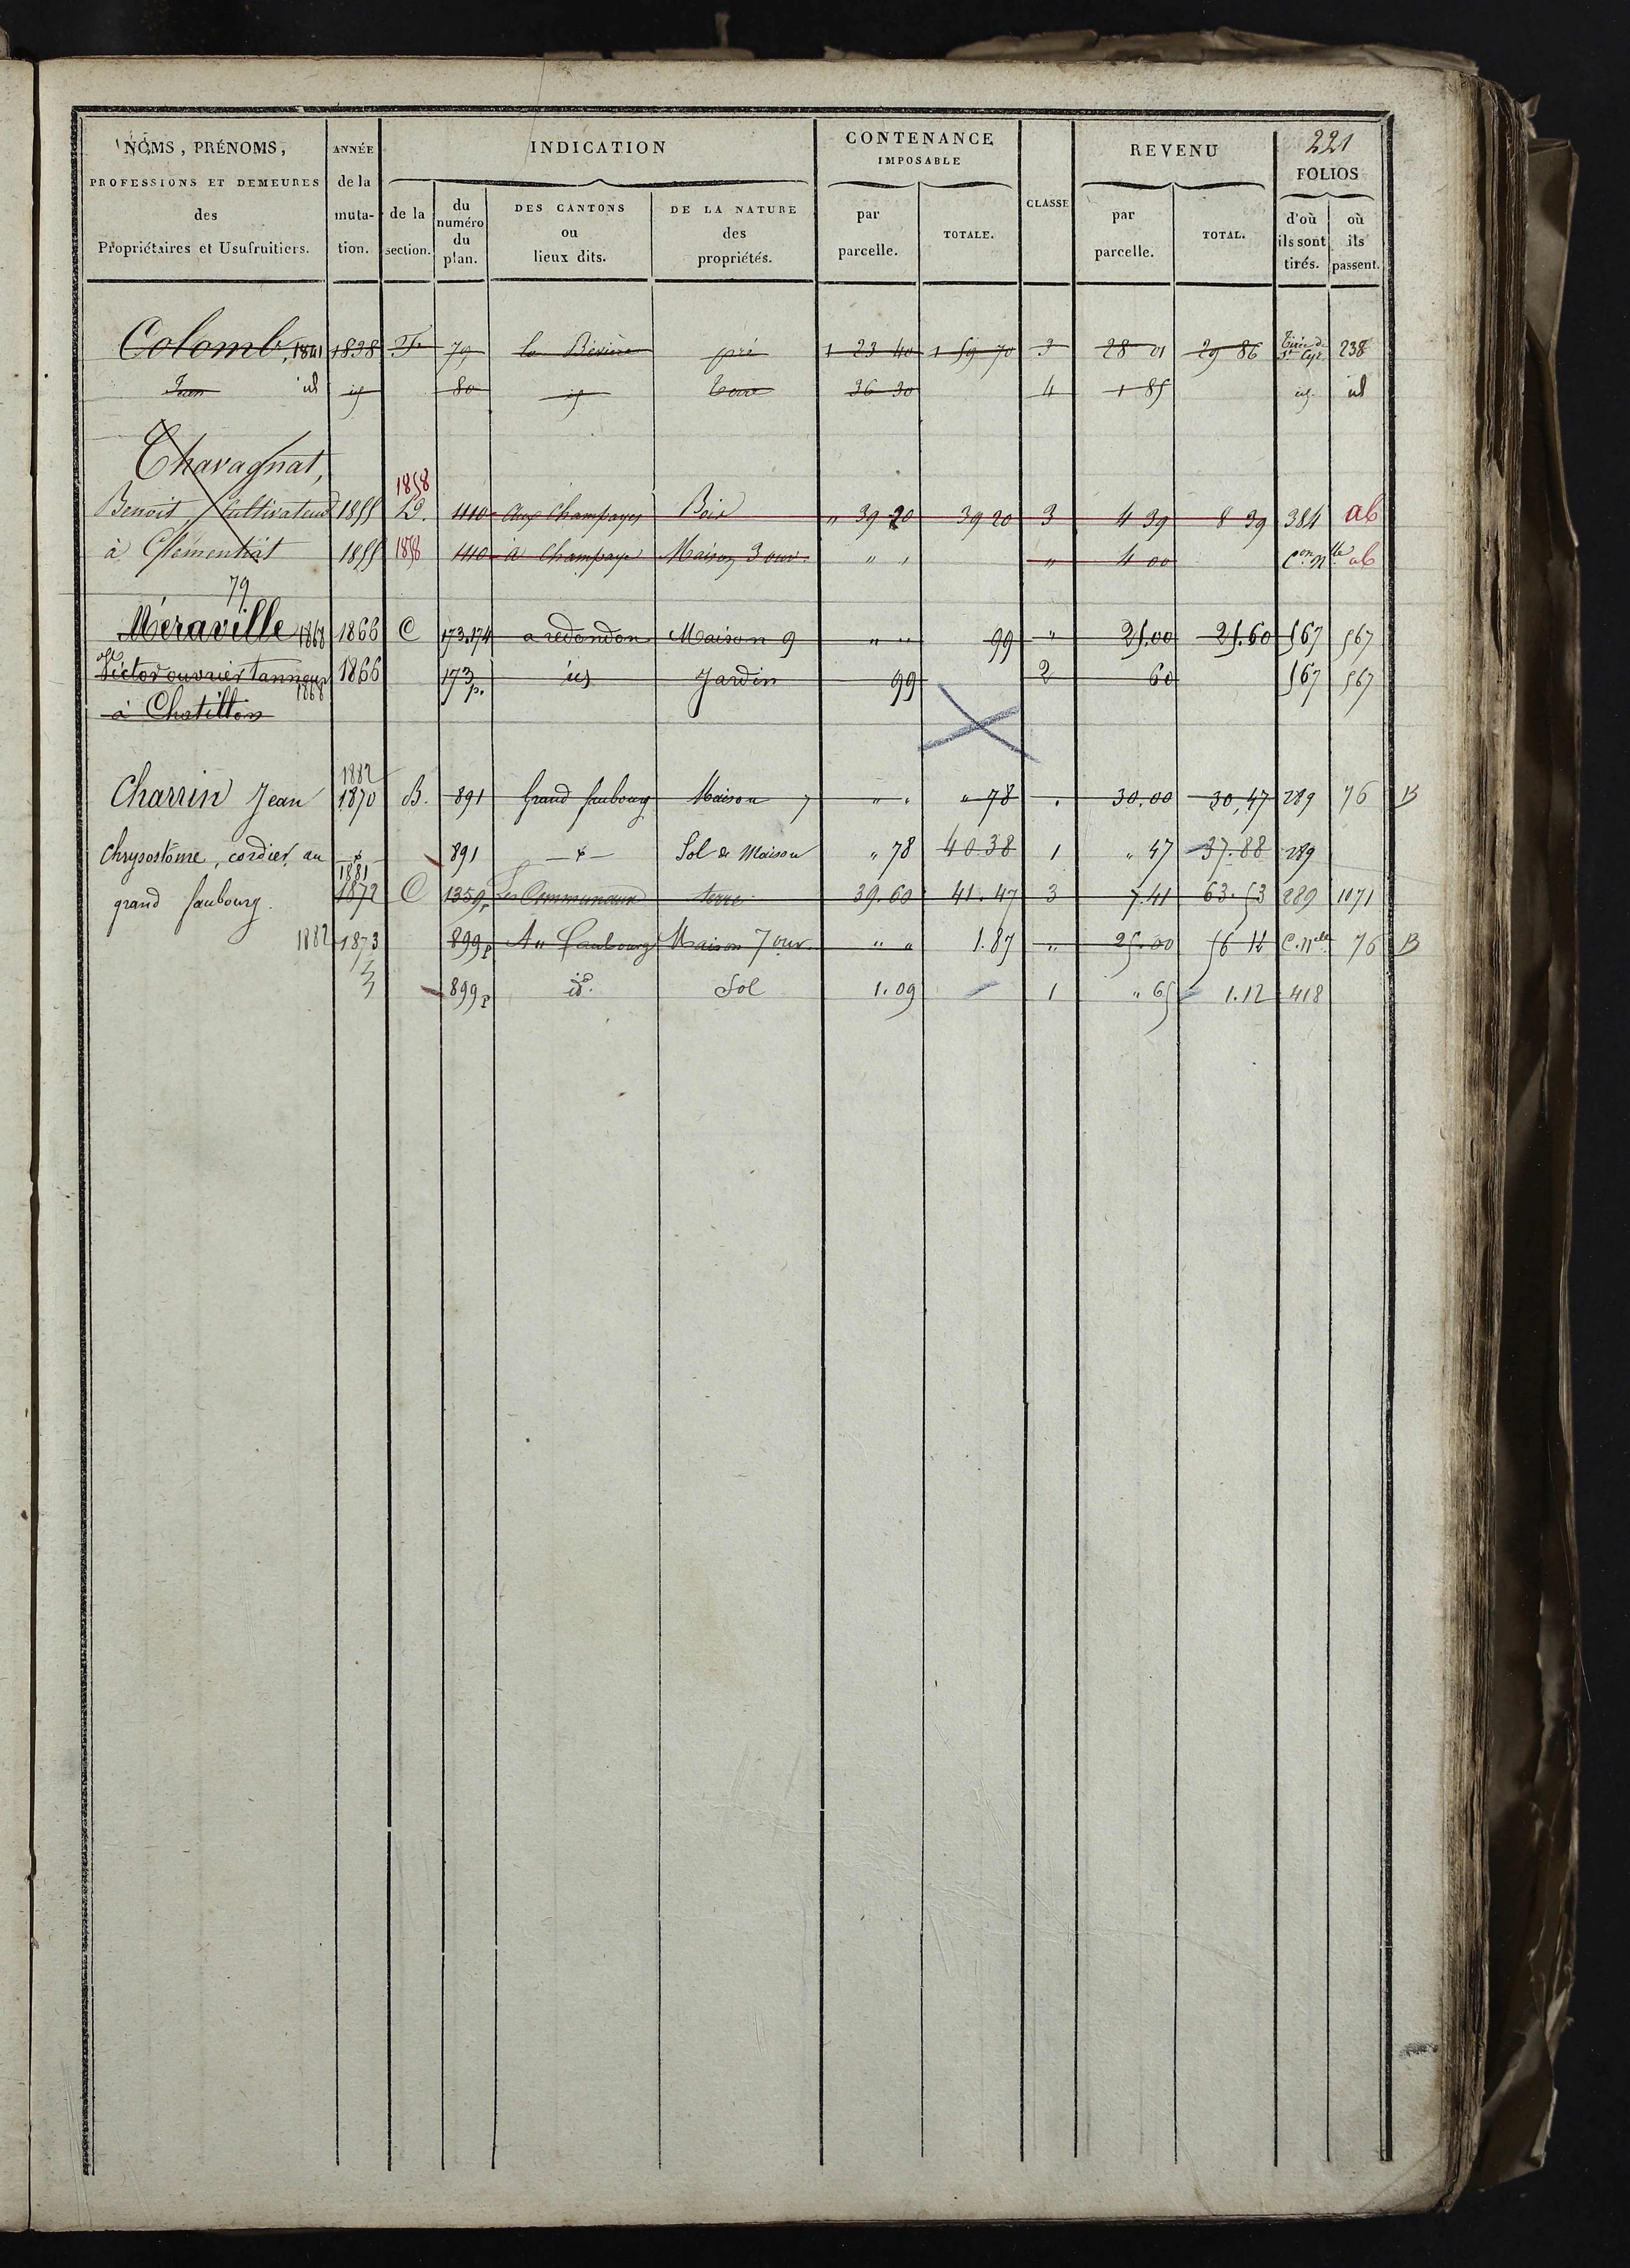 221
NOMS, PRÉNOMS, PROFESSIONS ET DEMEURES des Propriétaires et Usufruitiers.
ANNÉE de la muta-tion.
INDICATION
de la section.
du numéro du plan.
DES CANTONS ou lieux dits.
DE LA NATURE des propriétés.
CONTENANCE IMPOSABLE
par parcelle.
TOTALE.
CLASSE
REVENU
par parcelle.
TOTAL.
FOLIOS
d'où ils sont tirés.
où ils passent.
Colomb, 1841 1838 79 la Bévière pré 1 23 40 1 59 70 3 28 01 29 86 Tirée de St Cyr 238
id 80 Terre 36 30 4 1 85 id
Chavagnat,
1858
Benoit Cultivateur 1855 D. 1110 aux Champayes Bois " 39 20 39 20 3 4 39 8 39 384 ab
à Clémentiat 1855 1858 1110 à Champaye Maison 3 ouv. " " " 4 00 Con Nlle ab
79
Méraville 1868 1866 C 173.174 a redondon Maison 9 " " 99 " 25.00 25.60 567 567
Victor ouvrier tanneur 1866 173 p. id Jardin 99 2 60 567 567
1868
à Chatillon
1882
Charrin Jean 1870 B. 891 Grand faubourg Maison 7 " " " 78 " 30.00 30,47 289 76 B
Chrysostôme, cordier, au 891 Sol de Maison " 78 40.38 1 " 47 37.88 289
1881
grand faubourg. 1872 C 1359 p Les Communaux terre 39.60 41.47 3 7.41 63.53 289 1071
1882 1873 899 p Au faubourg Maison 7 ouv. " " 1.87 " 25.00 56 12 C. Nlle 76 B
899 p id. Sol 1.09 1 " 65 1.12 418